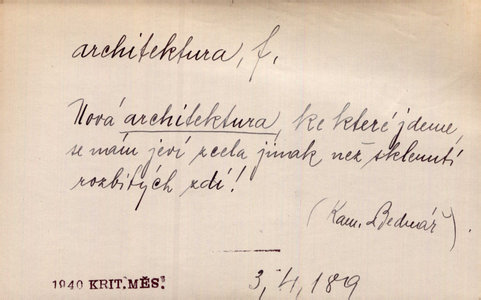 architektura, f.
Nová architektura, ke které jdeme,
se nám jeví zcela jinak než sklenutí
rozbitých zdí!
(Kam. Bednář).
1940 KRIT. MĚS.
3, 4, 189